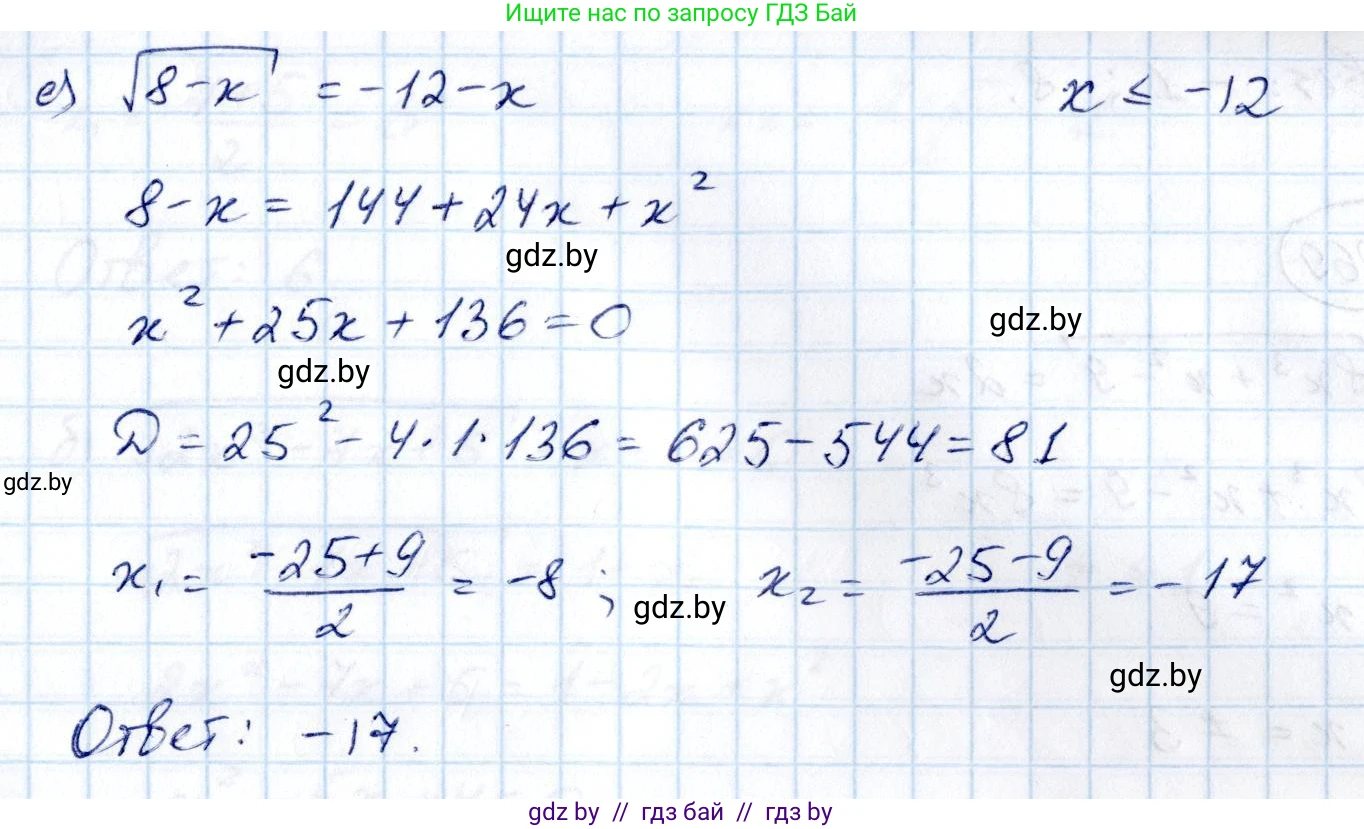 Ищите нас по запросу ГДЗ Бай
е) √(8-x) = -12-x x ≤ -12
8-x = 144+24x+x²
gdz.by
x²+25x+136=0
gdz.by
gdz.by
D = 25²-4·1·136 = 625-544=81
gdz.by
x₁ = (-25+9)/2 = -8 ; x₂ = (-25-9)/2 = -17
gdz.by
gdz.by
Ответ: -17.
gdz.by // гдз бай // gdz.by